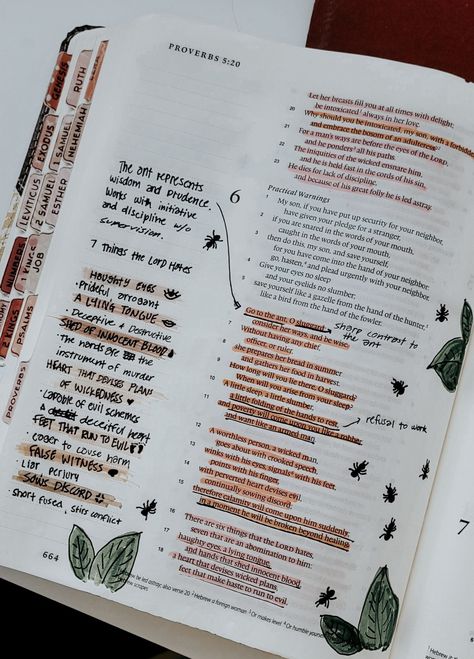 PROVERBS 5:20
GENESIS
RUTH
EXODUS
1 SAMUEL
NEHEMIAH
LEVITICUS
2 SAMUEL
ESTHER
NUMBERS
1 KINGS
JOB
2 KINGS
PSALMS
PROVERBS
The ant represents
wisdom and prudence.
Works with initiative
and discipline w/o
supervision.
7 Things the Lord Hates
HAUGHTY EYES
• Prideful arrogant
A LYING TONGUE
• Deceptive & Destructive
SHED OF INNOCENT BLOOD
The hands are the
instrument of murder
HEART THAT DEVISES PLANS
OF WICKEDNESS
capable of evil schemes
a deceitful heart
FEET THAT RUN TO EVIL
eager to cause harm
FALSE WITNESS
• Liar perjury
SOWS DISCORD
short fused, stirs conflict
664
Let her breasts fill you at all times with delight;
be intoxicated always in her love.
20 Why should you be intoxicated, my son, with a forbidden
and embrace the bosom of an adulteress?
21 For a man's ways are before the eyes of the LORD,
and he ponders all his paths.
22 The iniquities of the wicked ensnare him,
and he is held fast in the cords of his sin.
23 He dies for lack of discipline,
and because of his great folly he is led astray.
Practical Warnings
6 My son, if you have put up security for your neighbor,
have given your pledge for a stranger,
2 if you are snared in the words of your mouth,
caught in the words of your mouth,
3 then do this, my son, and save yourself,
for you have come into the hand of your neighbor:
go, hasten, and plead urgently with your neighbor.
4 Give your eyes no sleep
and your eyelids no slumber;
5 save yourself like a gazelle from the hand of the hunter,
like a bird from the hand of the fowler.
6 Go to the ant, O sluggard;
consider her ways, and be wise.
sharp contrast to
the ant
7 Without having any chief,
officer, or ruler,
8 she prepares her bread in summer
and gathers her food in harvest.
9 How long will you lie there, O sluggard?
When will you arise from your sleep?
10 A little sleep, a little slumber,
a little folding of the hands to rest,
refusal to work
11 and poverty will come upon you like a robber,
and want like an armed man.
12 A worthless person, a wicked man,
goes about with crooked speech,
13 winks with his eyes, signals with his feet,
points with his finger,
14 with perverted heart devises evil,
continually sowing discord;
15 therefore calamity will come upon him suddenly;
in a moment he will be broken beyond healing.
16 There are six things that the LORD hates,
seven that are an abomination to him:
17 haughty eyes, a lying tongue,
and hands that shed innocent blood,
18 a heart that devises wicked plans,
feet that make haste to run to evil,
7
be led astray; also verse 20 2 Hebrew a foreign woman 3 Or makes level 4 Or humble yourself